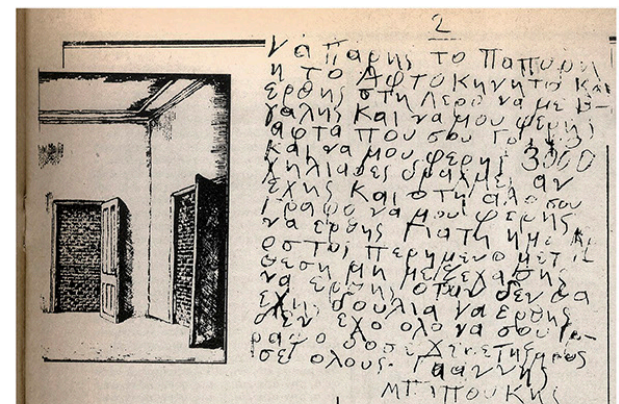 2
να παρης το Παπόρη
η το Αφτοκηνητο και
ερθης στη Λερο να με β-
γαλης και να μου φερης
αφτα που σου γραφο
και να μου φερης 3000
χηλιαδες δραχμες αν
εχης και οτη αλο σου
Γραφο να μου φερης
να ερθης Γιατη ημε
οστος περημενο με τ
θεση μη με ξεχασης
να ερθης οταν δεν θα
εχης δουλια να ερθης
δεν εχο ολο να σου γ-
ραψο δοσε Χερετησμους
σε ολους. Γιαννης
ΜΠΙΠΟΥΚΗΣ